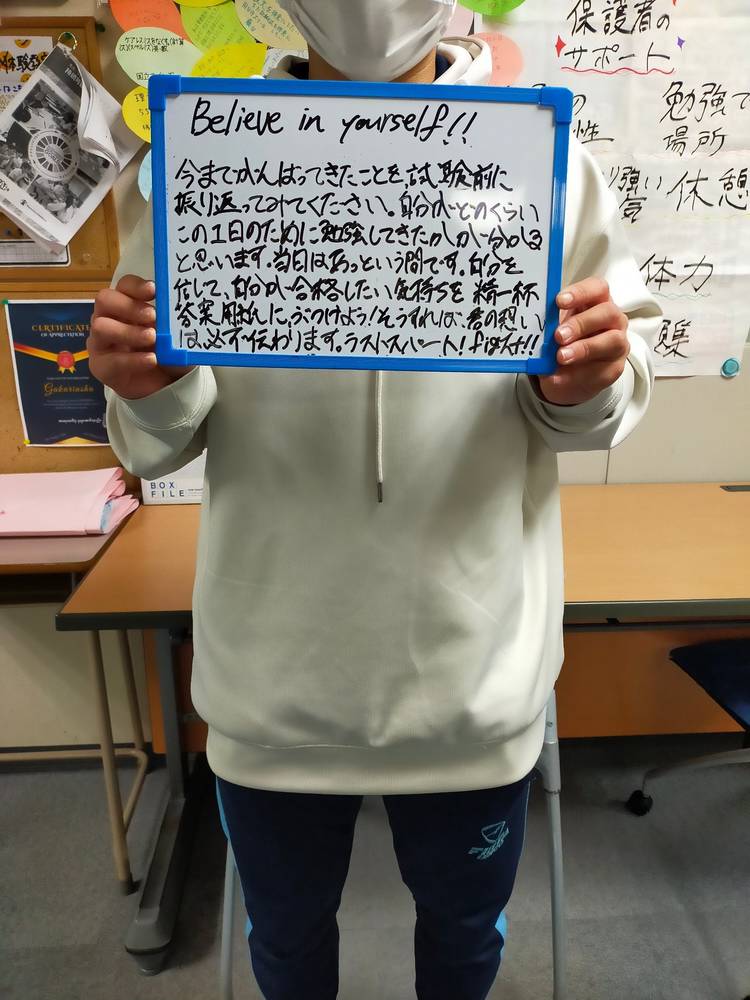 Believe in yourself!!
今までがんばってきたことを、試験前に
振り返ってみてください。自分がどのくらい
この1日のために勉強してきたかが分かる
と思います。当日はあっという間です。自分を
信じて、自分が合格したい気持ちを精一杯
答案用紙に、ぶつけよう！そうすれば、君の想い
は、必ず伝わります。ラストスパート！fight!!
保護者の
サポート
の
勉強で
性
場所
強い
休憩
気
体力
CERTIFICATE
OF APPRECIATION
BOX
FILE